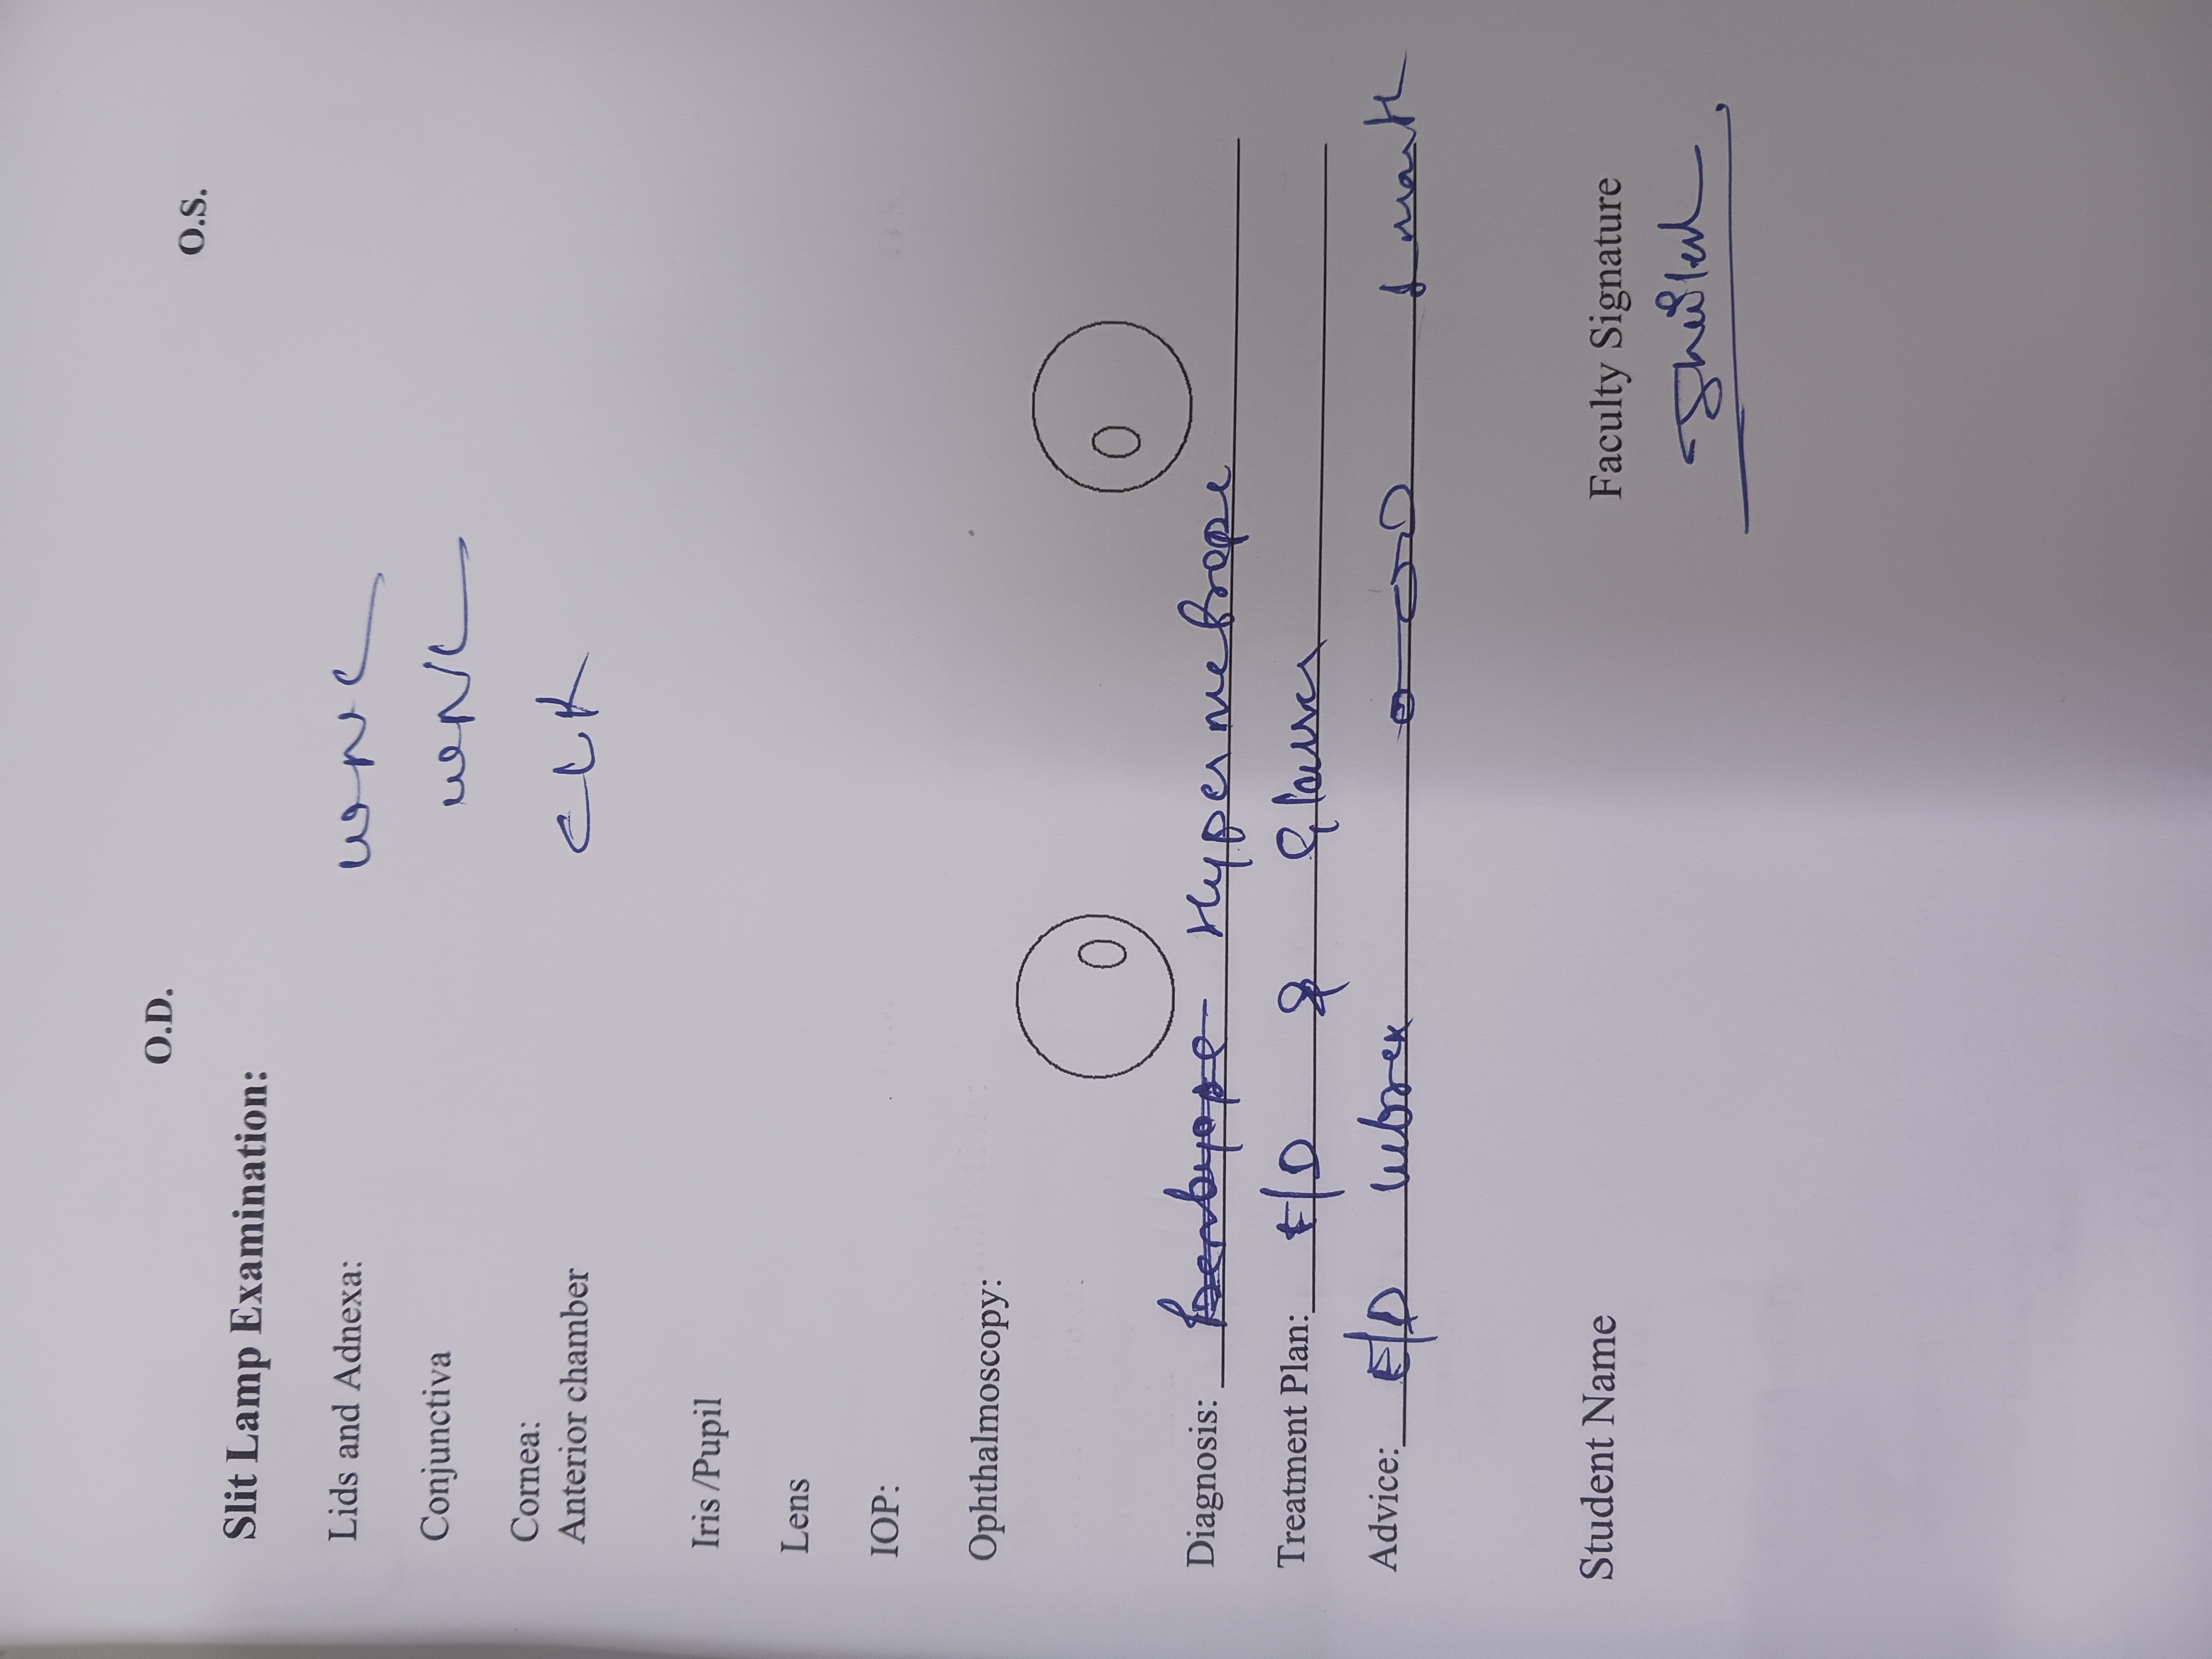 O.D. O.S.
Slit Lamp Examination:
Lids and Adnexa: WNL
Conjunctiva WNL
Cornea:
Anterior chamber CLR
Iris /Pupil
Lens
IOP:
Ophthalmoscopy:
Diagnosis: Hypermetrope
Treatment Plan: E/D & Glasses
Advice: E/D 1 month
Student Name Faculty Signature